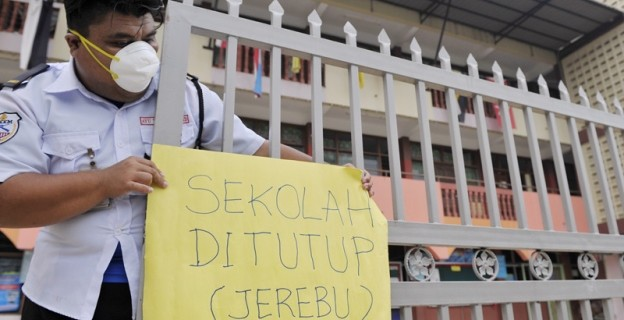 SEKOLAH
DITUTUP
(JEREBU)